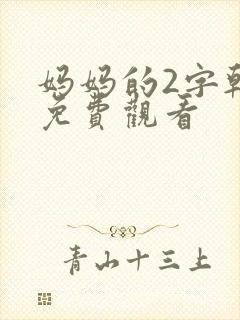 妈妈的2字韩
免費觀看
青山十三上